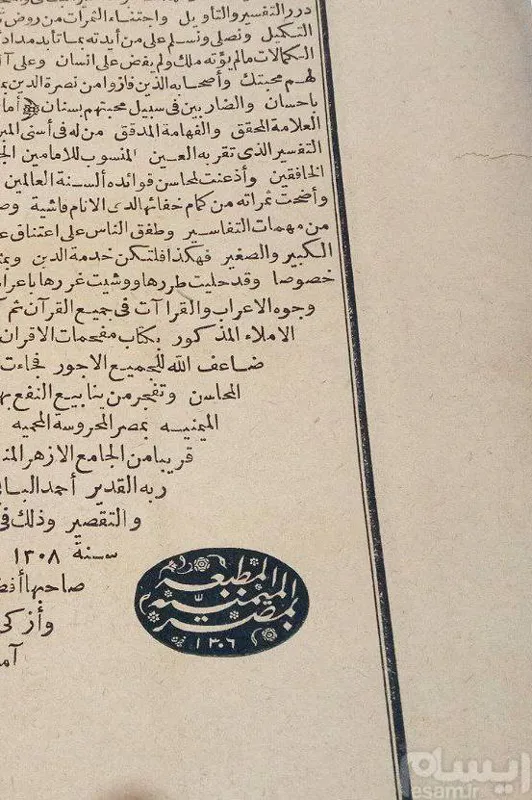 درر التفسير والتأويل واجتناء الثمرات من روض
التكيل ونصلي ونسلم على من أيدته بما تأيد
الكمالات مالم يؤته ملك ولم يفض على انسان وعلى
لهم محبتك وأصحابه الذين فازوا من نصرة الدين
باحسان والضاربين في سبيل محبتهم بسنان أما
العلامة المحقق والفهامة المدقق من له في أسنى
التفسير الذى تقر به العين المنسوب للامامين
الخافقين وأذعنت لمحاسن فوائده ألسنة العالمين
وأضحت ثمراته من كمام خفائها لدى الانام فاشية
من مهمات التفاسير وطفق الناس على اعتناق
الكبير والصغير فهكذا فلتكن خدمة الدين
خصوصا وقد حليت طررها ووشيت غررها باعراب
وجوه الاعراب والقراآت فى جميع القرآن ثم
الاملاء المذكور بكتاب مفحمات الاقران
ضاعف الله للجميع الاجور فجاءت
المحاسن وتفجر من ينابيع النفع
الميمنيه بمصر المحروسة المحميه
قريبا من الجامع الازهر
ربه القدير أحمد
والتقصير وذلك
سنة ١٣٠٨
صاحبها
وأزكى
المطبعة
الميمنية
بمصر
١٣٠٦
ایسام
esam.ir